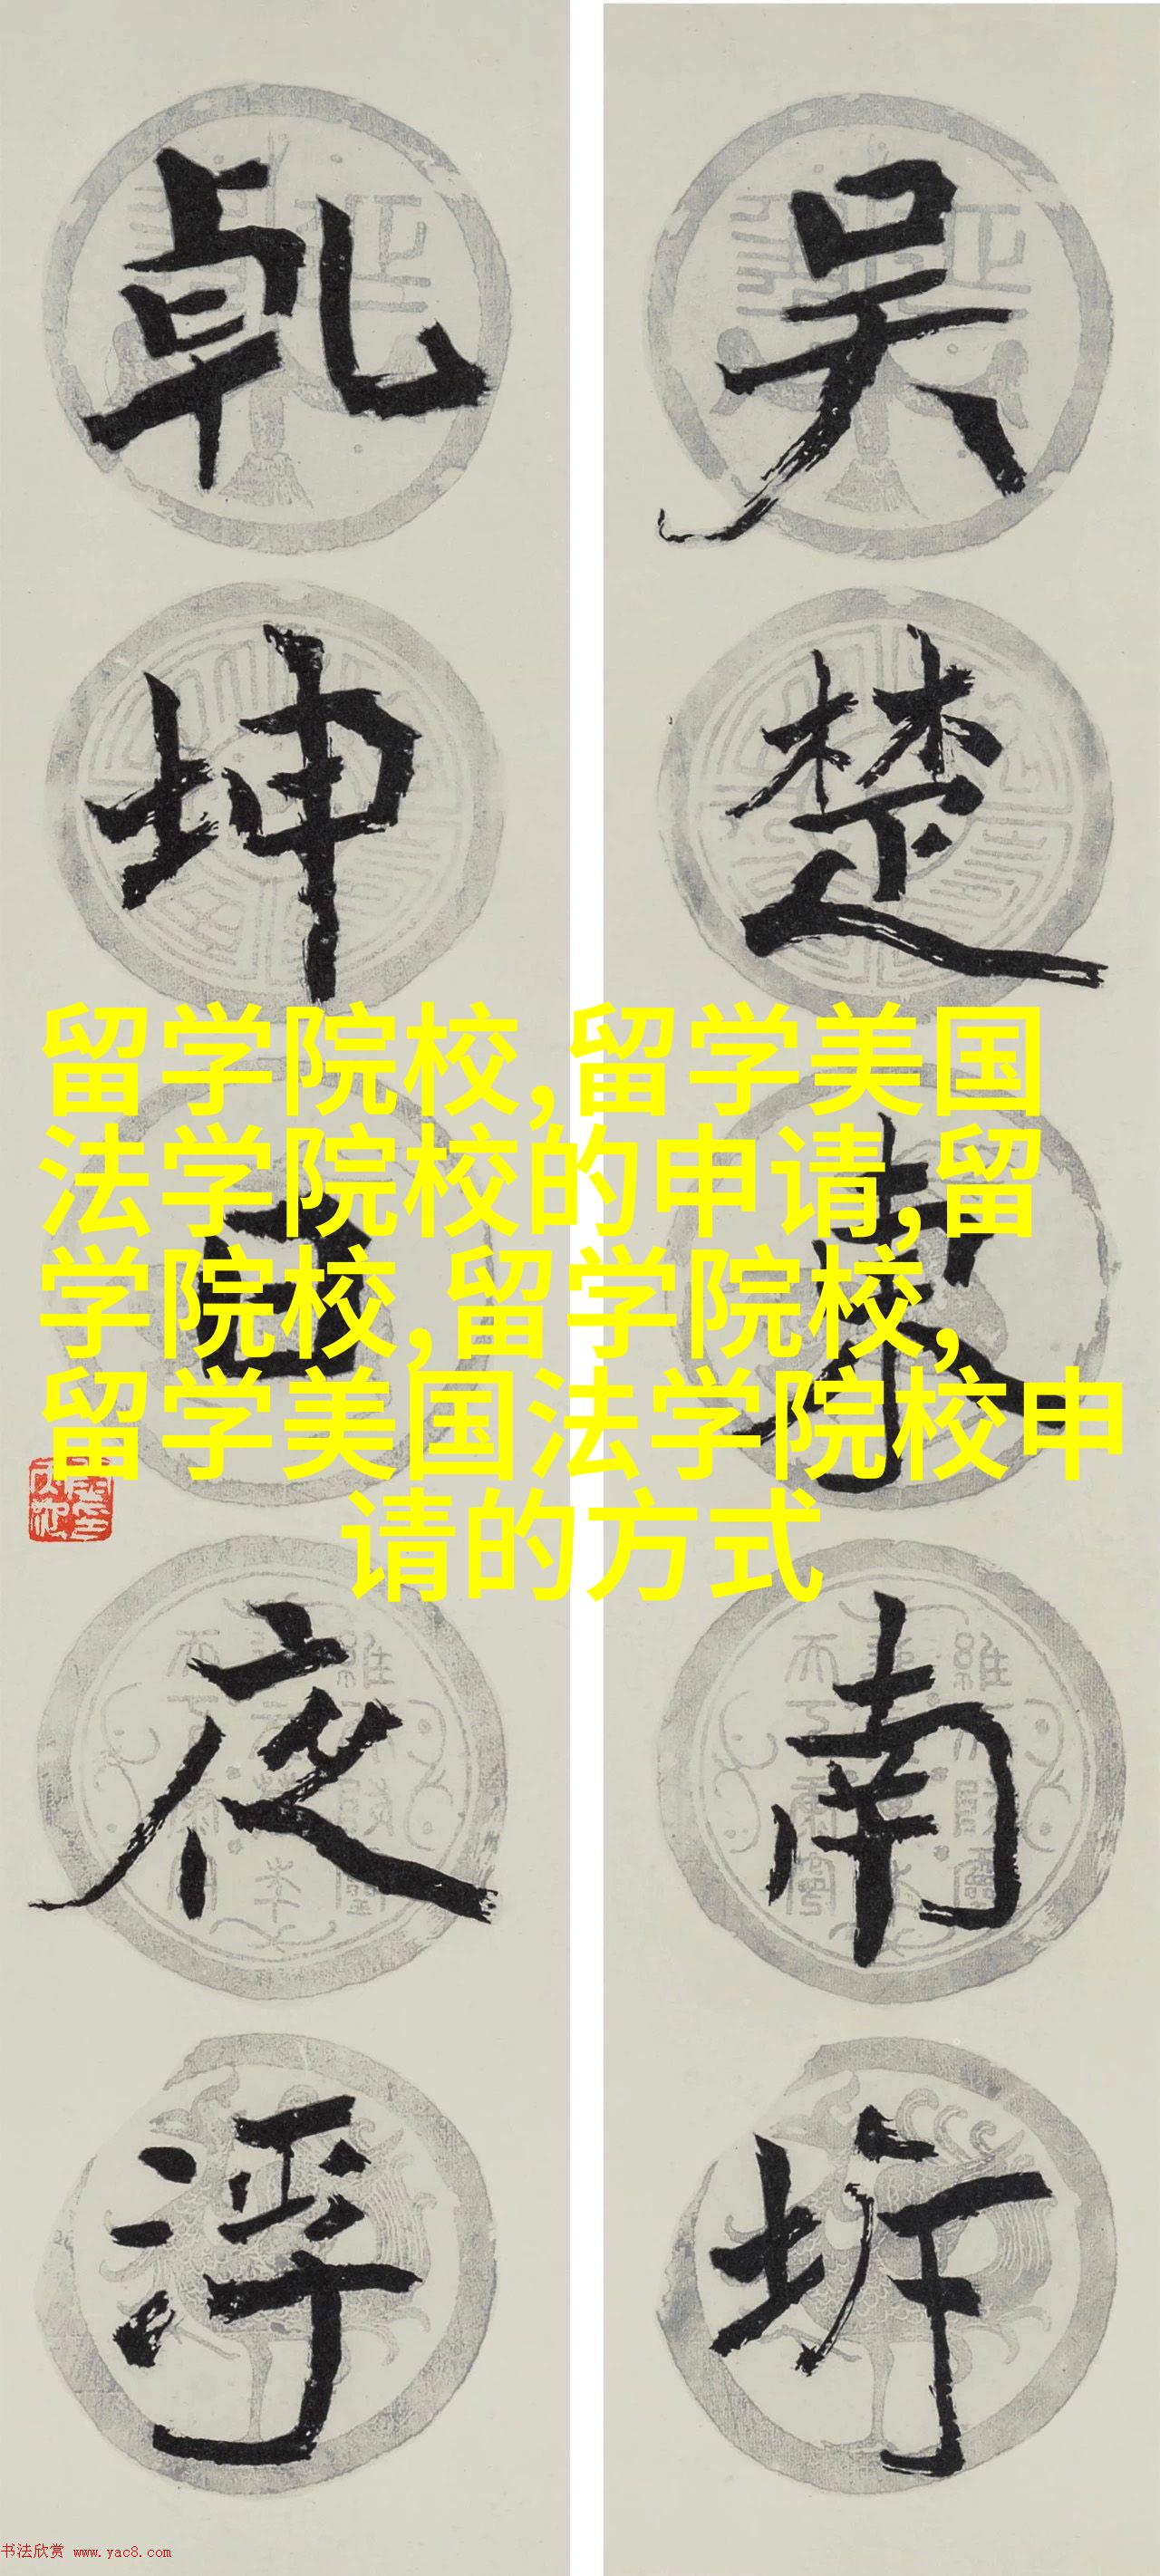 吴楚东南坼
乾坤日夜浮
留学院校,留学美国
法学院校的申请,留
学院校,留学院校,
留学美国法学院校申
请的方式
书法欣赏 www.yac8.com